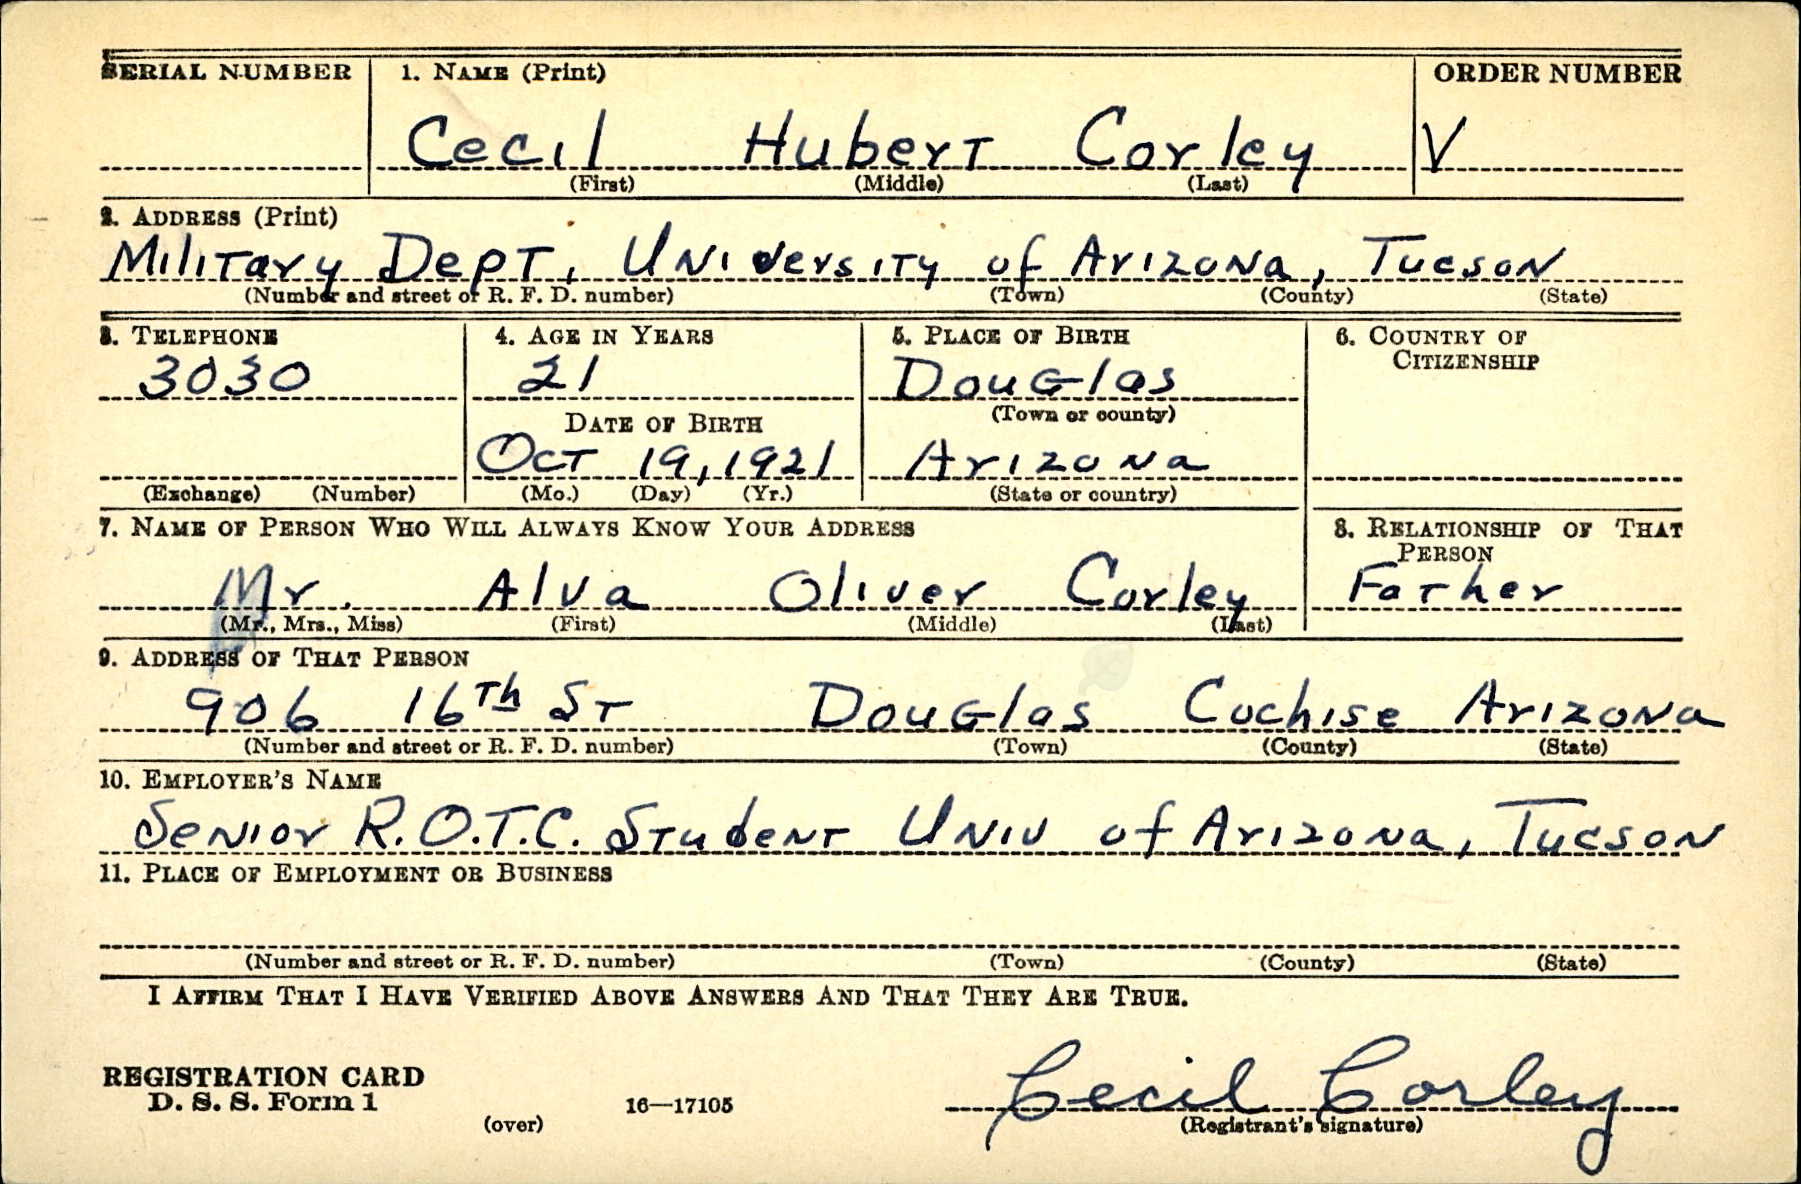 SERIAL NUMBER 1. NAME (Print) ORDER NUMBER
Cecil Hubert Corley V
(First) (Middle) (Last)
2. ADDRESS (Print)
Military Dept, University of Arizona, Tucson
(Number and street or R. F. D. number) (Town) (County) (State)
3. TELEPHONE 4. AGE IN YEARS 5. PLACE OF BIRTH 6. COUNTRY OF CITIZENSHIP
3030 21 Douglas
(Town or county)
DATE OF BIRTH
Oct 19, 1921 Arizona
(Exchange) (Number) (Mo.) (Day) (Yr.) (State or country)
7. NAME OF PERSON WHO WILL ALWAYS KNOW YOUR ADDRESS 8. RELATIONSHIP OF THAT PERSON
Mr. Alva Oliver Corley Father
(Mr., Mrs., Miss) (First) (Middle) (Last)
9. ADDRESS OF THAT PERSON
906 16th St Douglas Cochise Arizona
(Number and street or R. F. D. number) (Town) (County) (State)
10. EMPLOYER'S NAME
Senior R.O.T.C. Student Univ of Arizona, Tucson
11. PLACE OF EMPLOYMENT OR BUSINESS
(Number and street or R. F. D. number) (Town) (County) (State)
I AFFIRM THAT I HAVE VERIFIED ABOVE ANSWERS AND THAT THEY ARE TRUE.
REGISTRATION CARD
D. S. S. Form 1 16—17105 Cecil Corley
(over) (Registrant's signature)